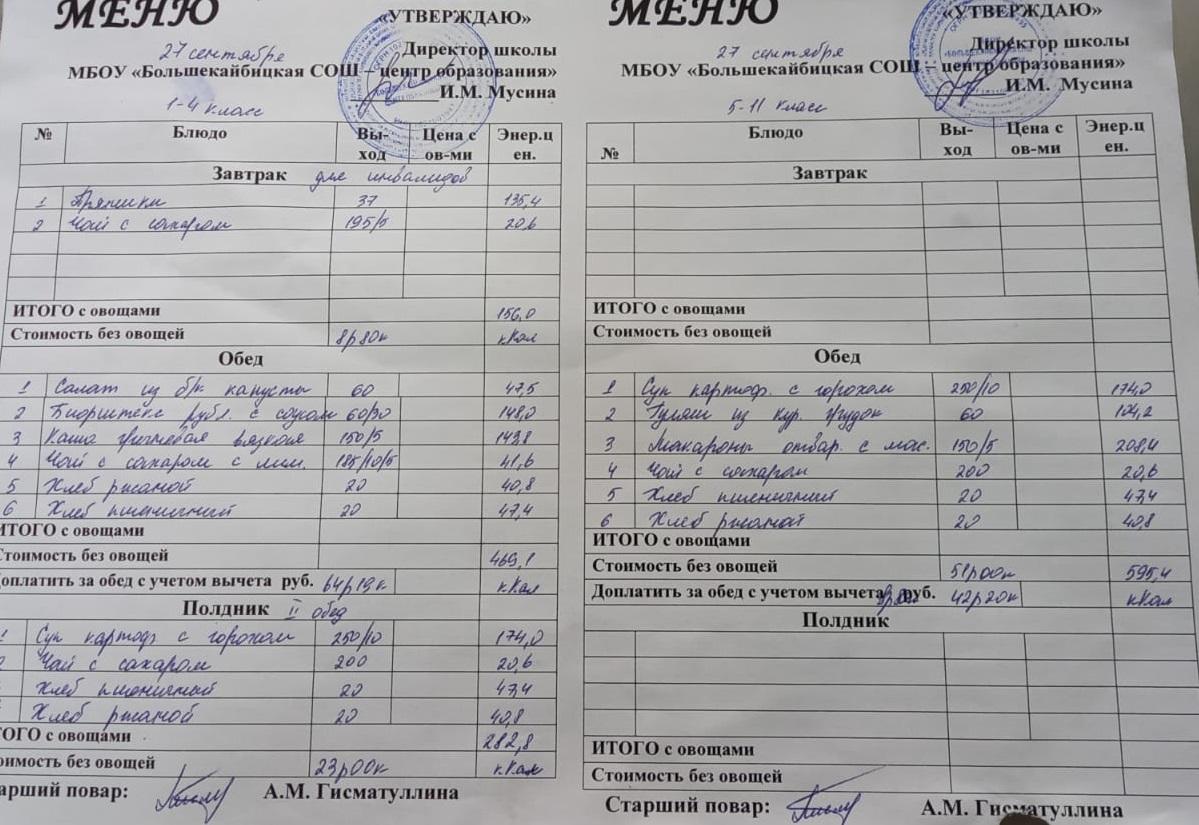 МЕНЮ
«УТВЕРЖДАЮ»
27 сентября
Директор школы
МБОУ «Большекайбицкая СОШ – центр образования»
И.М. Мусина
1-4 класс
№ Блюдо Вы-ход Цена с ов-ми Энер.цен.
Завтрак для инвалидов
1 Пряники 37 135,4
2 Чай с сахаром 195/5 20,6
ИТОГО с овощами 156,0
Стоимость без овощей 8р80к кКал
Обед
1 Салат из б/к капусты 60 47,5
2 Биорштекс рубл. с соусом 60/30 148,0
3 Каша гречневая вязкая 150/5 143,8
4 Чай с сахаром с лим. 185/10/5 41,6
5 Хлеб ржаной 20 40,8
6 Хлеб пшеничный 20 47,4
ИТОГО с овощами
Стоимость без овощей 469,1
Доплатить за обед с учетом вычета руб. 64р19к кКал
Полдник II обед
Суп картоф с горохом 250/10 174,0
Чай с сахаром 200 20,6
Хлеб пшеничный 20 47,4
Хлеб ржаной 20 40,8
ТОГО с овощами 282,8
оимость без овощей 23р00к кКал
арший повар: А.М. Гисматуллина
МЕНЮ
«УТВЕРЖДАЮ»
27 сентября
Директор школы
МБОУ «Большекайбицкая СОШ – центр образования»
И.М. Мусина
5-11 класс
№ Блюдо Вы-ход Цена с ов-ми Энер.цен.
Завтрак
ИТОГО с овощами
Стоимость без овощей
Обед
1 Суп картоф. с горохом 250/10 174,0
2 Гуляш из кур. грудок 60 104,2
3 Макароны отвар. с мас. 150/5 208,4
4 Чай с сахаром 200 20,6
5 Хлеб пшеничный 20 47,4
6 Хлеб ржаной 20 40,8
ИТОГО с овощами
Стоимость без овощей 51р00к 595,4
Доплатить за обед с учетом вычета руб. 42р20к кКал
Полдник
ИТОГО с овощами
Стоимость без овощей
Старший повар: А.М. Гисматуллина